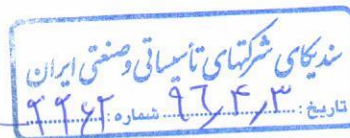 سندیکای شرکتهای تأسیساتی و صنعتی ایران
تاریخ : ۹۶٫۴٫۳ شماره : ۹۹۶۲